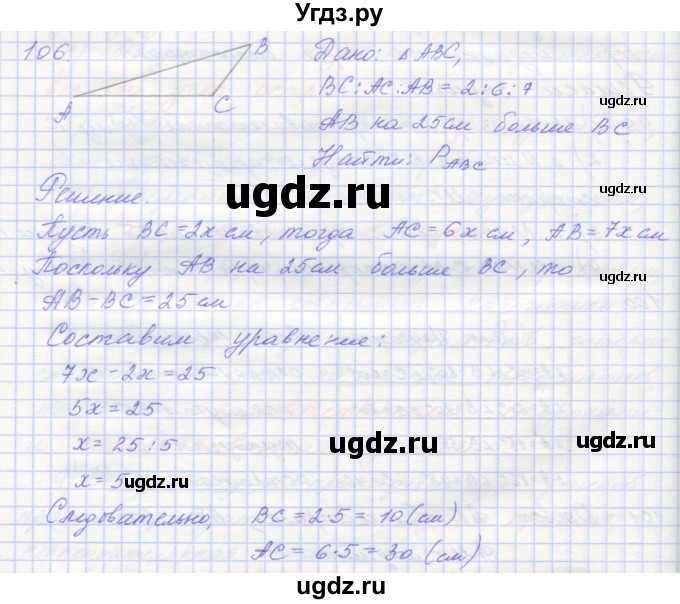 Угдз.ру
106.
B
A
C
Дано: △ABC,
BC:AC:AB = 2:6:7
AB на 25см больше BC
Найти: P_ABC
ugdz.ru
ugdz.ru
ugdz.ru
Решение.
Пусть BC=2x см, тогда AC=6x см, AB=7x см
Поскольку AB на 25см больше BC, то
ugdz.ru
AB-BC=25см
Составим уравнение:
7x-2x=25
5x=25
x=25:5
ugdz.ru
ugdz.ru
x=5
ugdz.ru
Следовательно, BC=2·5=10(см)
ugdz.ru
AC=6·5=30(см)
ugdz.ru
ugdz.ru